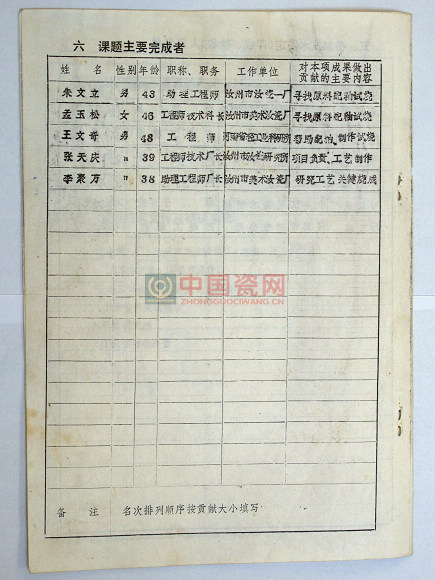 六 课题主要完成者
姓 名 性别 年龄 职称、职务 工作单位 对本项成果做出贡献的主要内容
朱文立 男 43 助理工程师 汝州市汝瓷一厂 寻找原料配釉试烧
孟玉松 女 46 工程师技术科长 汝州市美术汝瓷厂 寻找原料配釉试烧
王文奇 男 48 工程师 制作试烧
张天庆 〃 39 工程师技术厂长 项目负责工艺制作
李聚万 〃 38 助理工程师厂长 汝州市美术汝瓷厂 研究工艺关键烧成
中国瓷网
ZHONGGUOCIWANG.COM
备 注 名次排列顺序按贡献大小填写